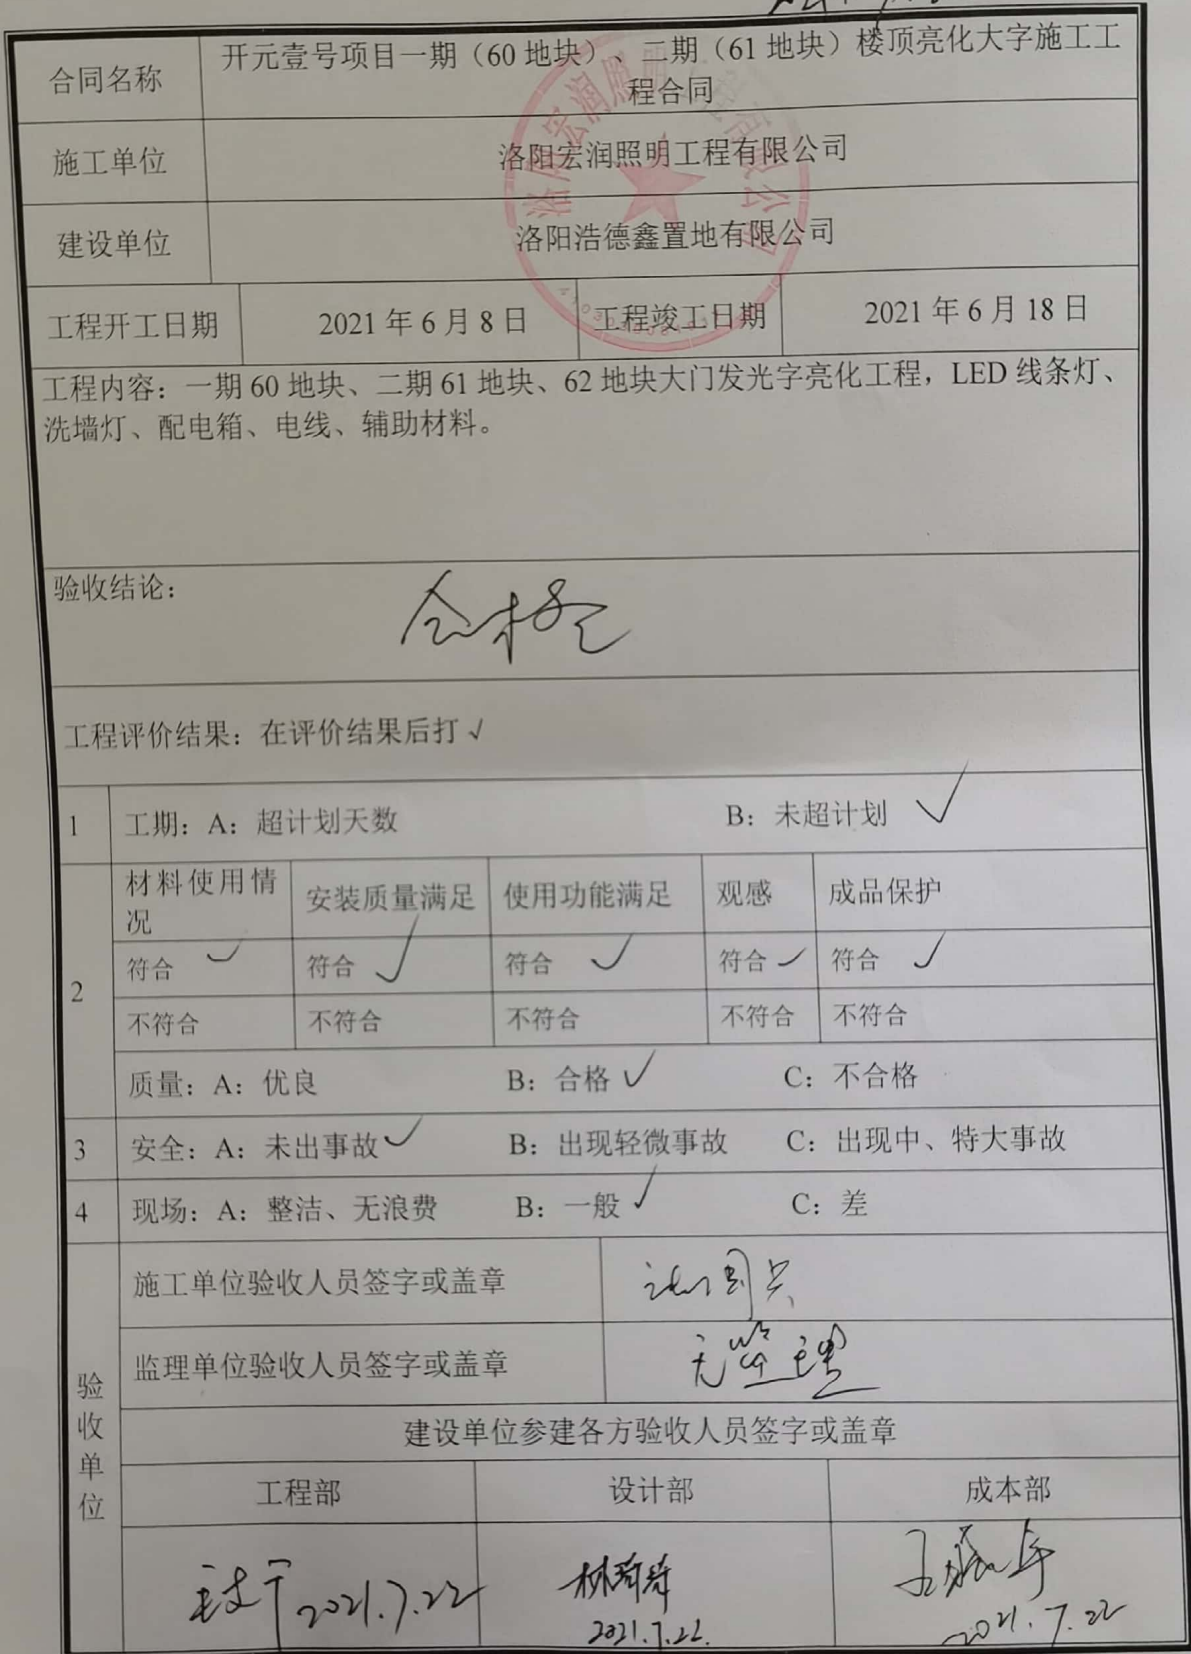 合同名称
开元壹号项目一期（60 地块）、二期（61 地块）楼顶亮化大字施工工
程合同
施工单位
洛阳宏润照明工程有限公司
建设单位
洛阳浩德鑫置地有限公司
工程开工日期
2021 年 6 月 8 日
工程竣工日期
2021 年 6 月 18 日
工程内容：一期 60 地块、二期 61 地块、62 地块大门发光字亮化工程，LED 线条灯、
洗墙灯、配电箱、电线、辅助材料。
验收结论：
合格
工程评价结果：在评价结果后打√
1 工期：A：超计划天数 B：未超计划 √
2
材料使用情
况
安装质量满足 使用功能满足 观感 成品保护
符合 √ 符合 √ 符合 √ 符合 √ 符合 √
不符合 不符合 不符合 不符合 不符合
质量：A：优良 B：合格 √ C：不合格
3 安全：A：未出事故 √ B：出现轻微事故 C：出现中、特大事故
4 现场：A：整洁、无浪费 B：一般 √ C：差
验收单位
施工单位验收人员签字或盖章
监理单位验收人员签字或盖章
无监理
建设单位参建各方验收人员签字或盖章
工程部 设计部 成本部
2021.7.22
2021.7.22.
2021.7.22